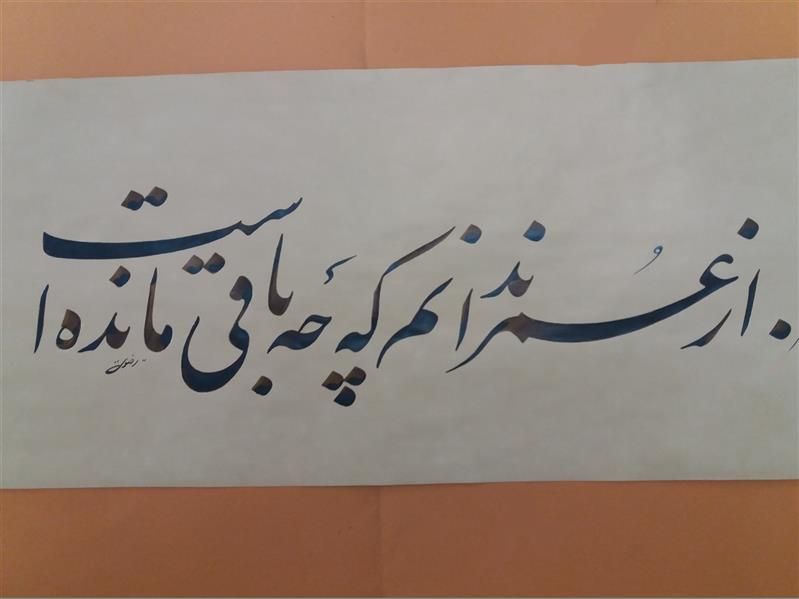 از عُمر ندانم که چه باقی مانده است
رضوی